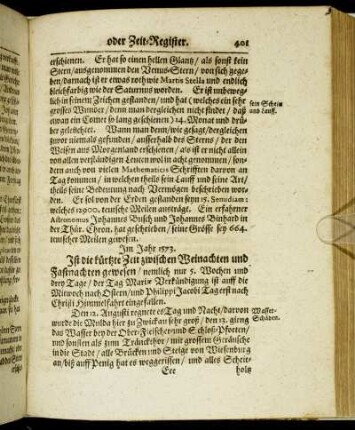 oder Zeit-Register. 401
erschienen. Er hat so einen hellen Glantz / als sonst kein
Stern / ausgenommen den Venus-Stern / von sich gege-
ben / darnach ist er etwas roth wie Martis Stella und endlich
bleichfarbig wie der Saturnus worden. Er ist unbeweg-
lich in seinem Zeichen gestanden / und hat (welches ein sehr
grosses Wunder / denn man dergleichen nicht findet / daß
sein Schein
und lauff.
etwan ein Comet so lang geschienen) 14. Monat und drü-
ber geleuchtet. Wann man denn / wie gesagt / dergleichen
zuvor niemals gefunden / ausserhalb des Sterns / der den
Weisen aus Morgenland erschienen / als ist er nicht allein
von allen verständigen Leuten wol in acht genommen / son-
dern auch von vielen Mathematicis Schrifften davon an
Tag kommen / in welchen theils sein Lauff und seine Art /
theils seine Bedeutung nach Vermögen beschrieben wor-
den. Er sol von der Erden gestanden seyn 15. Semidiam:
welches 12900. teutsche Meilen austräge. Ein erfahrner
Astronomus Johannes Busch und Johannes Binhard in
der Thür. Chron. hat geschrieben / seine Grösse sey 664.
teutscher Meilen gewesen.
Im Jahr 1573.
Ist die kürtzte Zeit zwischen Weinachten und
Fastnachten gewesen / nemlich nur 5. Wochen und
drey Tage / der Tag Mariæ Verkündigung ist auff die
Mitwoch nach Ostern / und Philippi Jacobi Tag erst nach
Christi Himmelfahrt eingefallen.
Den 12. Augusti regnete es Tag und Nacht / davon
Wasser-
Schäden.
wurde die Mulda hier zu Zwickau sehr groß / den 13. gieng
das Wasser bey der Ober-Fleischer- und Schloß-Pforten /
und sonsten als zum Tränckthor / mit grossem Geräusche
in die Stadt / alle Brücken und Steige von Wiesenburg
an / biß auff Penig hat es weggerissen / und alles Scheit-
Eee holtz